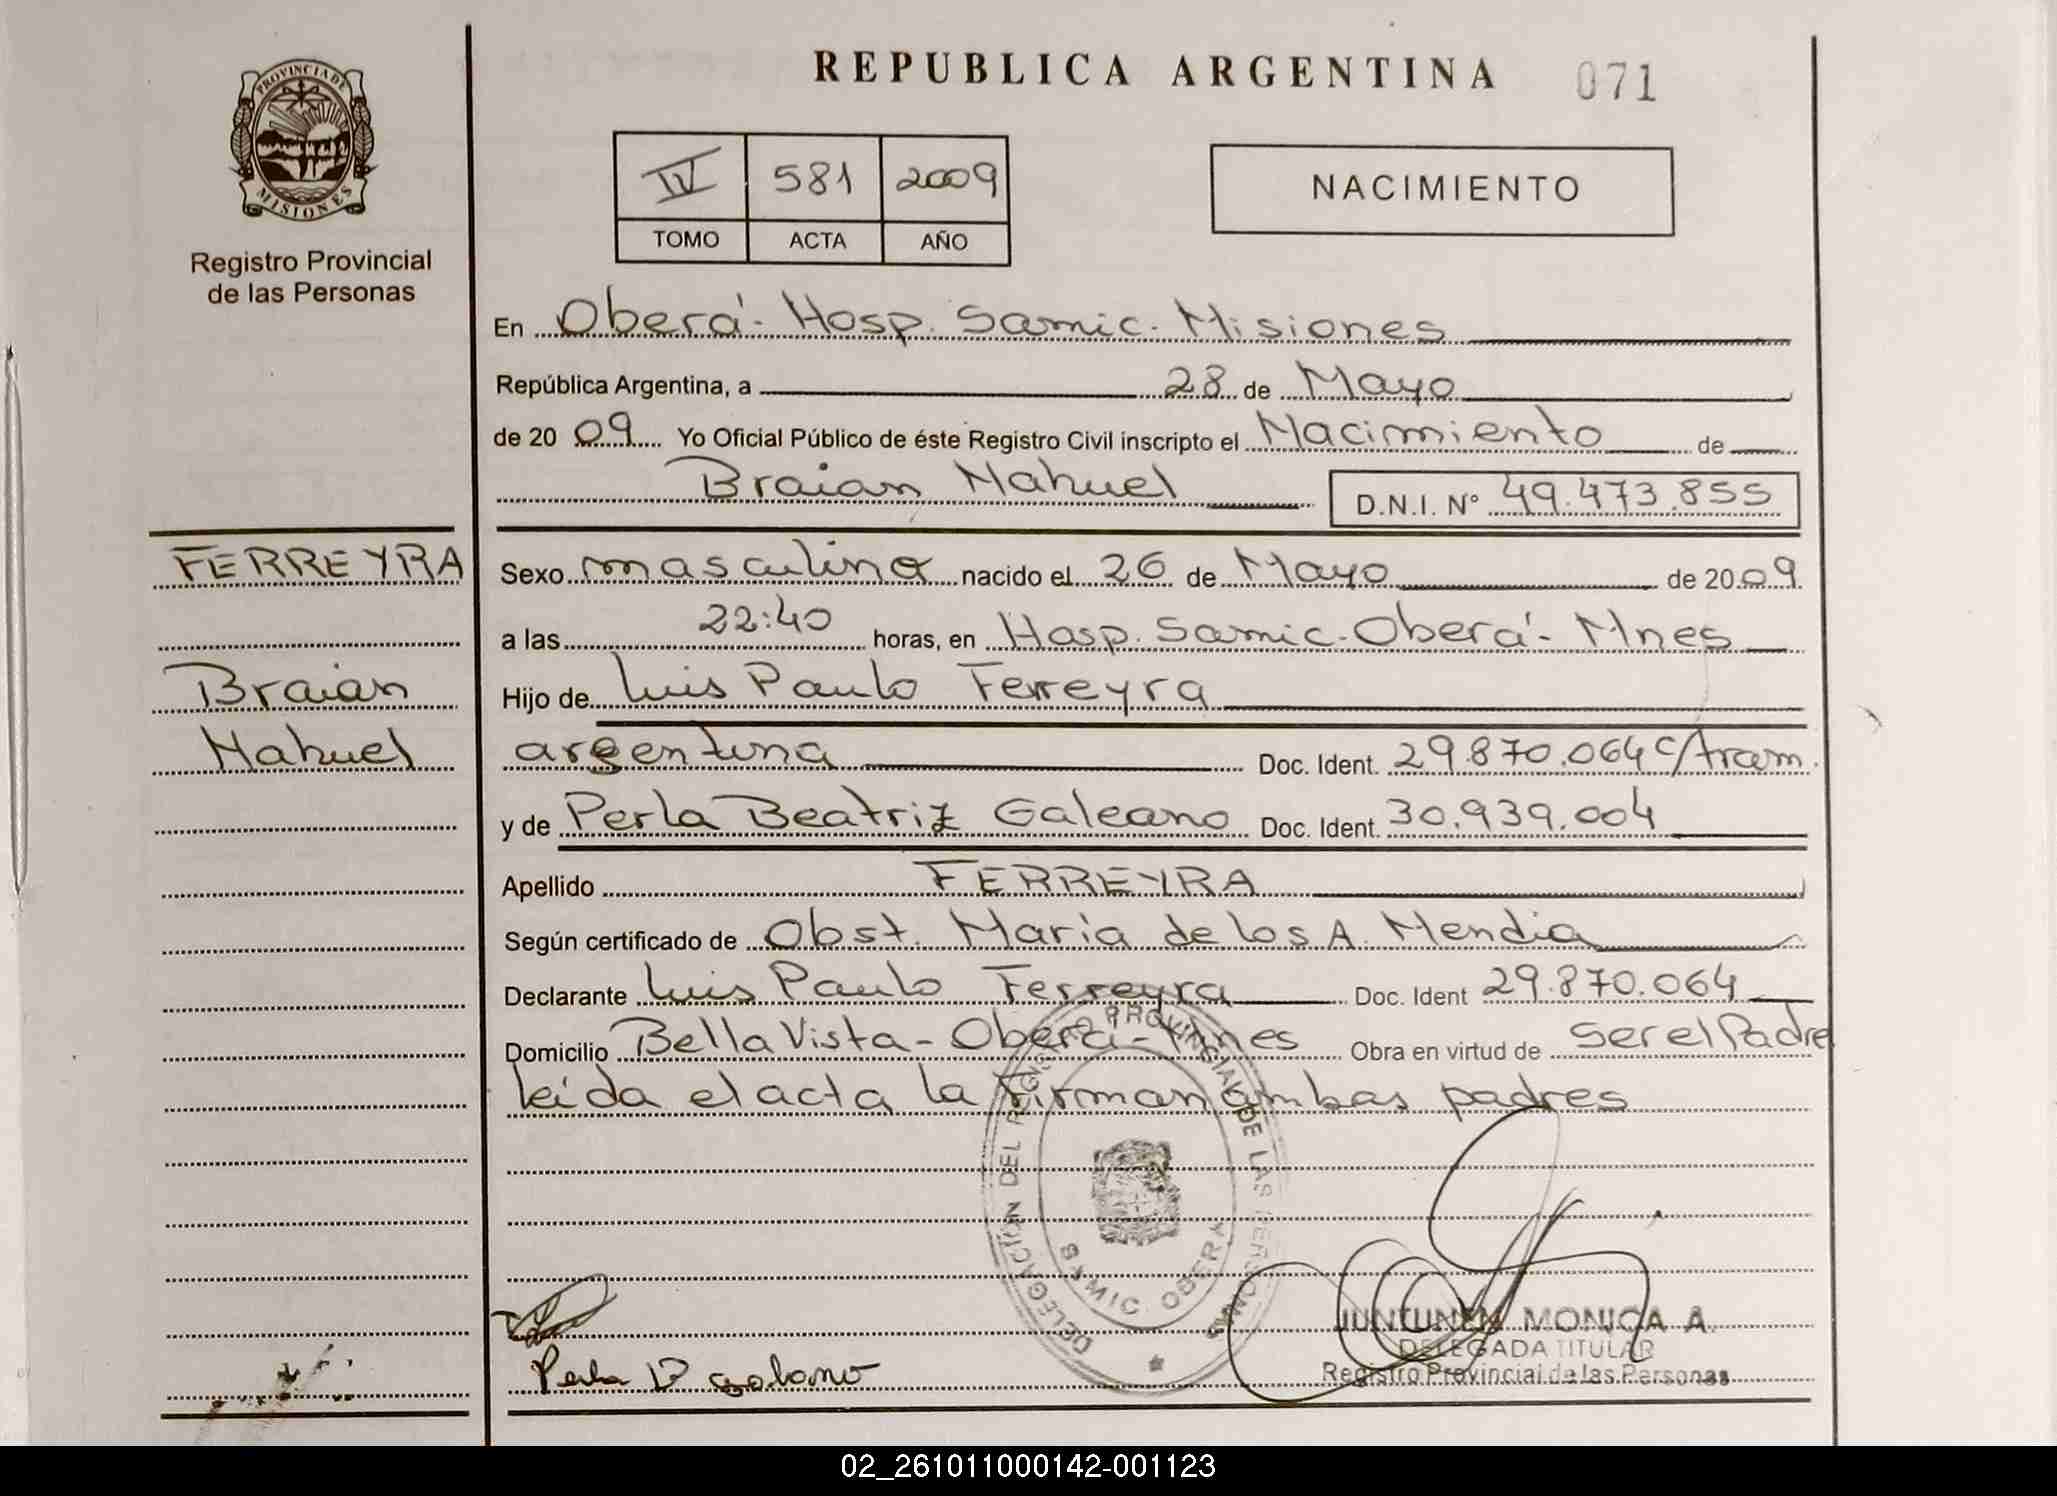 REPUBLICA ARGENTINA 071
PROVINCIA DE
MISIONES
Registro Provincial
de las Personas
IV 581 2009
TOMO ACTA AÑO
NACIMIENTO
En Oberá - Hosp. Samic. Misiones
República Argentina, a 28 de Mayo
de 20 09 Yo Oficial Público de éste Registro Civil inscripto el Nacimiento de
Braian Nahuel D.N.I. Nº 49.473.855
FERREYRA
Braian
Nahuel
Sexo masculino nacido el 26 de Mayo de 20 09.
a las 22:40 horas, en Hosp. Samic. Oberá - Mnes
Hijo de Luis Paulo Ferreyra
argentina Doc. Ident. 29.870.064 c/Aram.
y de Perla Beatriz Galeano Doc. Ident. 30.939.004
Apellido FERREYRA
Según certificado de Obst. Maria de los A. Mendia
Declarante Luis Paulo Ferreyra Doc. Ident 29.870.064
Domicilio Bella Vista - Oberá - Mnes Obra en virtud de ser el Padre
leida el acta la firman ambas padres
DELEGACION DEL REGISTRO PROVINCIAL DE LAS PERSONAS
SAMIC OBERA
Perla B galeano
JUNTUNEN MONICA A.
DELEGADA TITULAR
Registro Provincial de las Personas
02_261011000142-001123